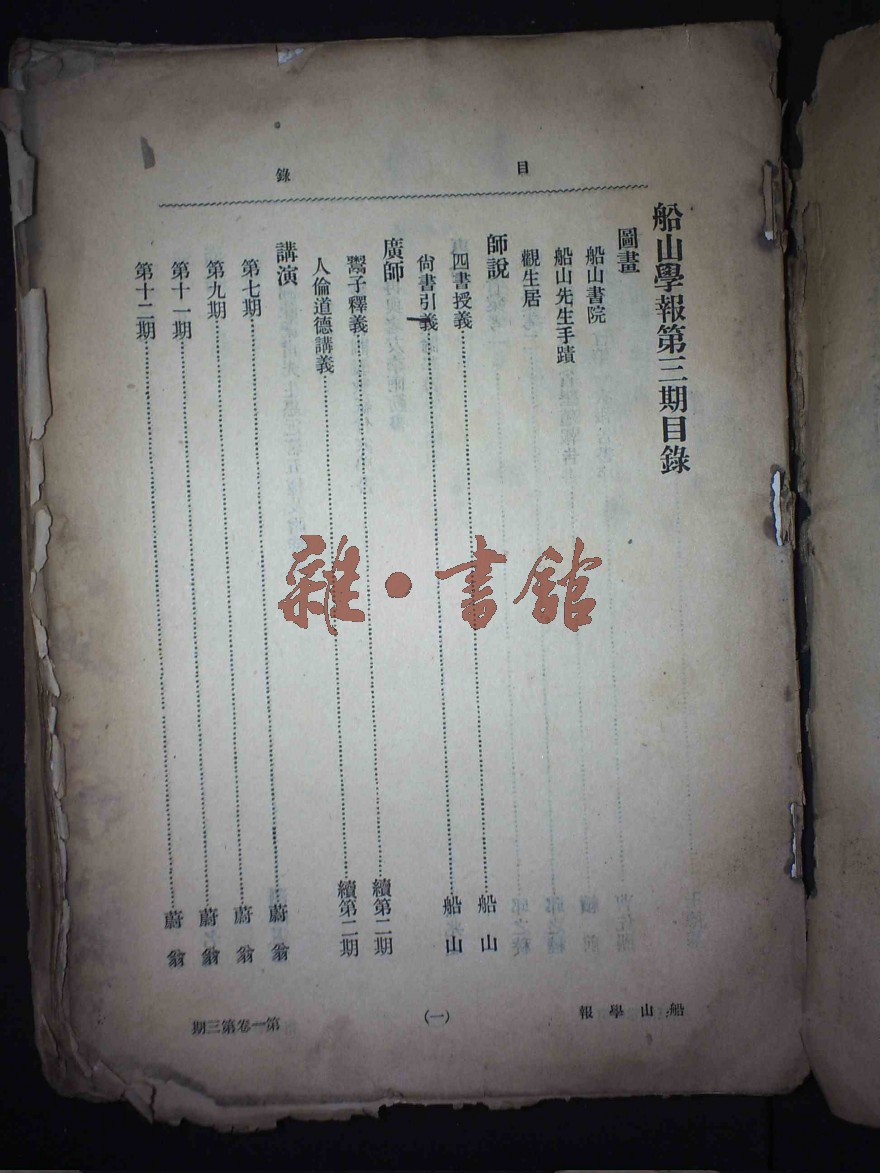 目錄
船山學報第三期目錄
圖畫
船山書院
船山先生手蹟
觀生居
師說
四書授義……船山
尙書引義……船山
廣師
鬻子釋義……續第二期
人倫道德講義……續第二期
講演
第七期……蔚翁
第九期……蔚翁
第十一期……蔚翁
第十二期……蔚翁
船山學報
(一)
第一卷第三期
雜·書館